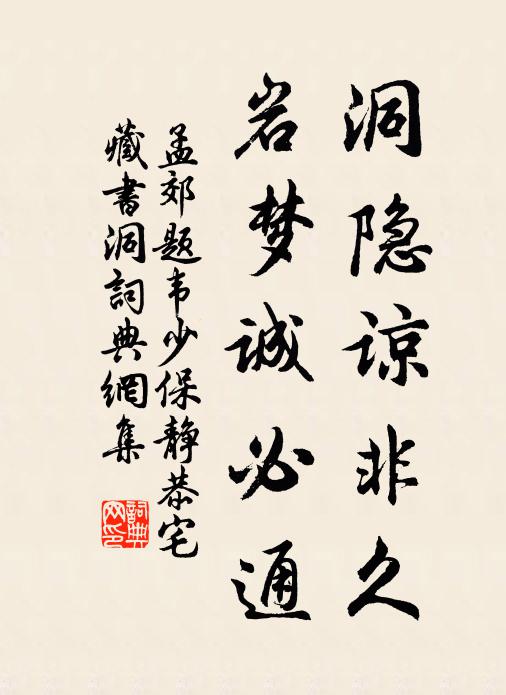 洞隐谅非久
岩梦诚必通
孟郊题韦少保静恭宅
藏書洞詞典網集
詞典网印